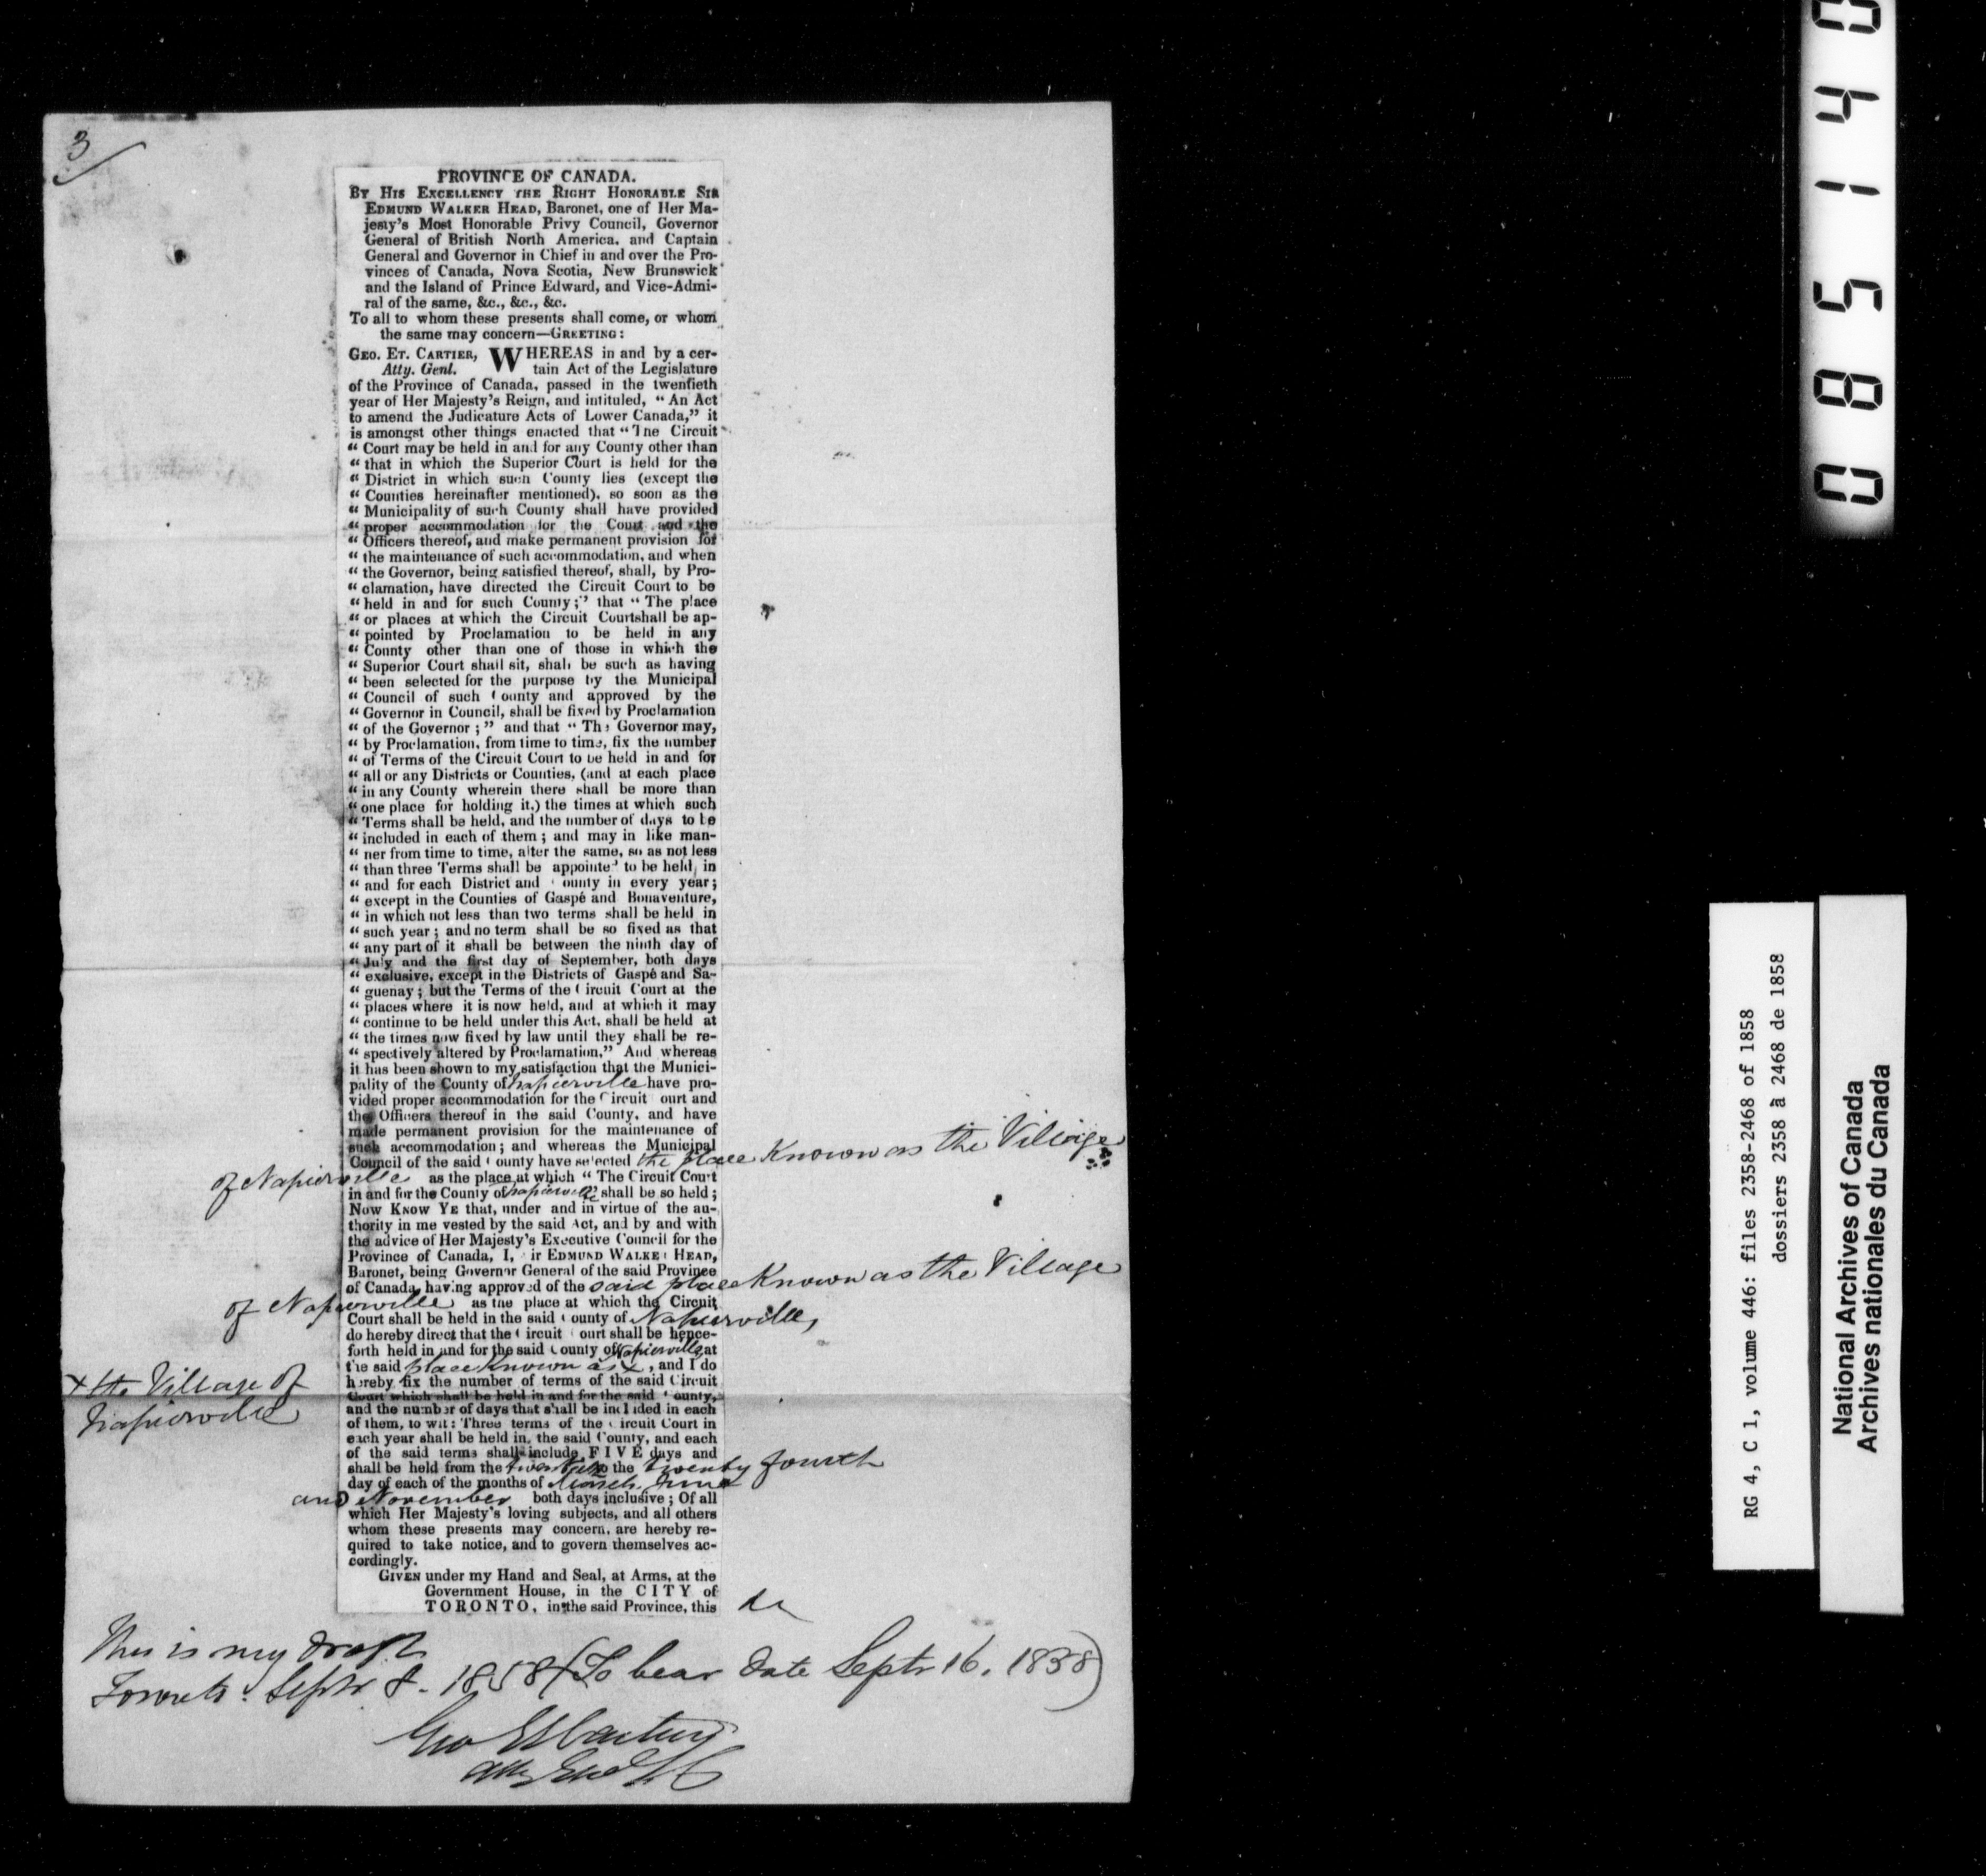 3
PROVINCE OF CANADA.
BY HIS EXCELLENCY THE RIGHT HONORABLE SIR
EDMUND WALKER HEAD, Baronet, one of Her Ma-
jesty's Most Honorable Privy Council, Governor
General of British North America, and Captain
General and Governor in Chief in and over the Pro-
vinces of Canada, Nova Scotia, New Brunswick
and the Island of Prince Edward, and Vice-Admi-
ral of the same, &c., &c., &c.
To all to whom these presents shall come, or whom
the same may concern—GREETING:
GEO. ET. CARTIER, WHEREAS in and by a cer-
Atty. Genl. tain Act of the Legislature
of the Province of Canada, passed in the twentieth
year of Her Majesty's Reign, and intituled, "An Act
to amend the Judicature Acts of Lower Canada," it
is amongst other things enacted that "The Circuit
" Court may be held in and for any County other than
" that in which the Superior Court is held for the
" District in which such County lies (except the
" Counties hereinafter mentioned), so soon as the
" Municipality of such County shall have provided
" proper accommodation for the Court and the
" Officers thereof, and make permanent provision for
" the maintenance of such accommodation, and when
" the Governor, being satisfied thereof, shall, by Pro-
" clamation, have directed the Circuit Court to be
" held in and for such County;" that " The place
" or places at which the Circuit Courtshall be ap-
" pointed by Proclamation to be held in any
" County other than one of those in which the
" Superior Court shall sit, shall be such as having
" been selected for the purpose by the Municipal
" Council of such County and approved by the
" Governor in Council, shall be fixed by Proclamation
" of the Governor ;" and that " The Governor may,
" by Proclamation, from time to time, fix the number
" of Terms of the Circuit Court to be held in and for
" all or any Districts or Counties, (and at each place
" in any County wherein there shall be more than
" one place for holding it,) the times at which such
" Terms shall be held, and the number of days to be
" included in each of them ; and may in like man-
" ner from time to time, alter the same, so as not less
" than three Terms shall be appointed to be held, in
" and for each District and County in every year;
" except in the Counties of Gaspé and Bonaventure,
" in which not less than two terms shall be held in
" such year ; and no term shall be so fixed as that
" any part of it shall be between the ninth day of
" July and the first day of September, both days
" exclusive, except in the Districts of Gaspé and Sa-
" guenay ; but the Terms of the Circuit Court at the
" places where it is now held, and at which it may
" continue to be held under this Act, shall be held at
" the times now fixed by law until they shall be re-
" spectively altered by Proclamation," And whereas
it has been shown to my satisfaction that the Munici-
pality of the County of Napierville have pro-
vided proper accommodation for the Circuit Court and
the Officers thereof in the said County, and have
made permanent provision for the maintenance of
such accommodation; and whereas the Municipal
Council of the said County have selected the place Known as the Village
of Napierville as the place at which " The Circuit Court
in and for the County of Napierville shall be so held ;
NOW KNOW YE that, under and in virtue of the au-
thority in me vested by the said Act, and by and with
the advice of Her Majesty's Executive Council for the
Province of Canada, I, Sir EDMUND WALKER HEAD,
Baronet, being Governor General of the said Province
of Canada, having approved of the said place Known as the Village
of Napierville as the place at which the Circuit
Court shall be held in the said County of Napierville,
do hereby direct that the Circuit Court shall be hence-
forth held in and for the said County of Napierville at
the said place Known as x, and I do
x the Village of
Napierville
hereby fix the number of terms of the said Circuit
Court which shall be held in and for the said County,
and the number of days that shall be included in each
of them, to wit: Three terms of the Circuit Court in
each year shall be held in, the said County, and each
of the said terms shall include FIVE days and
shall be held from the twentieth to the twenty fourth
day of each of the months of March, June
and November both days inclusive ; Of all
which Her Majesty's loving subjects, and all others
whom these presents may concern, are hereby re-
quired to take notice, and to govern themselves ac-
cordingly.
GIVEN under my Hand and Seal, at Arms, at the
Government House, in the CITY of
TORONTO, in the said Province, this
This is my draft
Toronto. Septr 8. 1858 (To bear date Septr 16. 1858)
Geo Et Cartier
Atty Genl L C
085140
RG 4, C 1, volume 446: files 2358-2468 of 1858
dossiers 2358 à 2468 de 1858
National Archives of Canada
Archives nationales du Canada